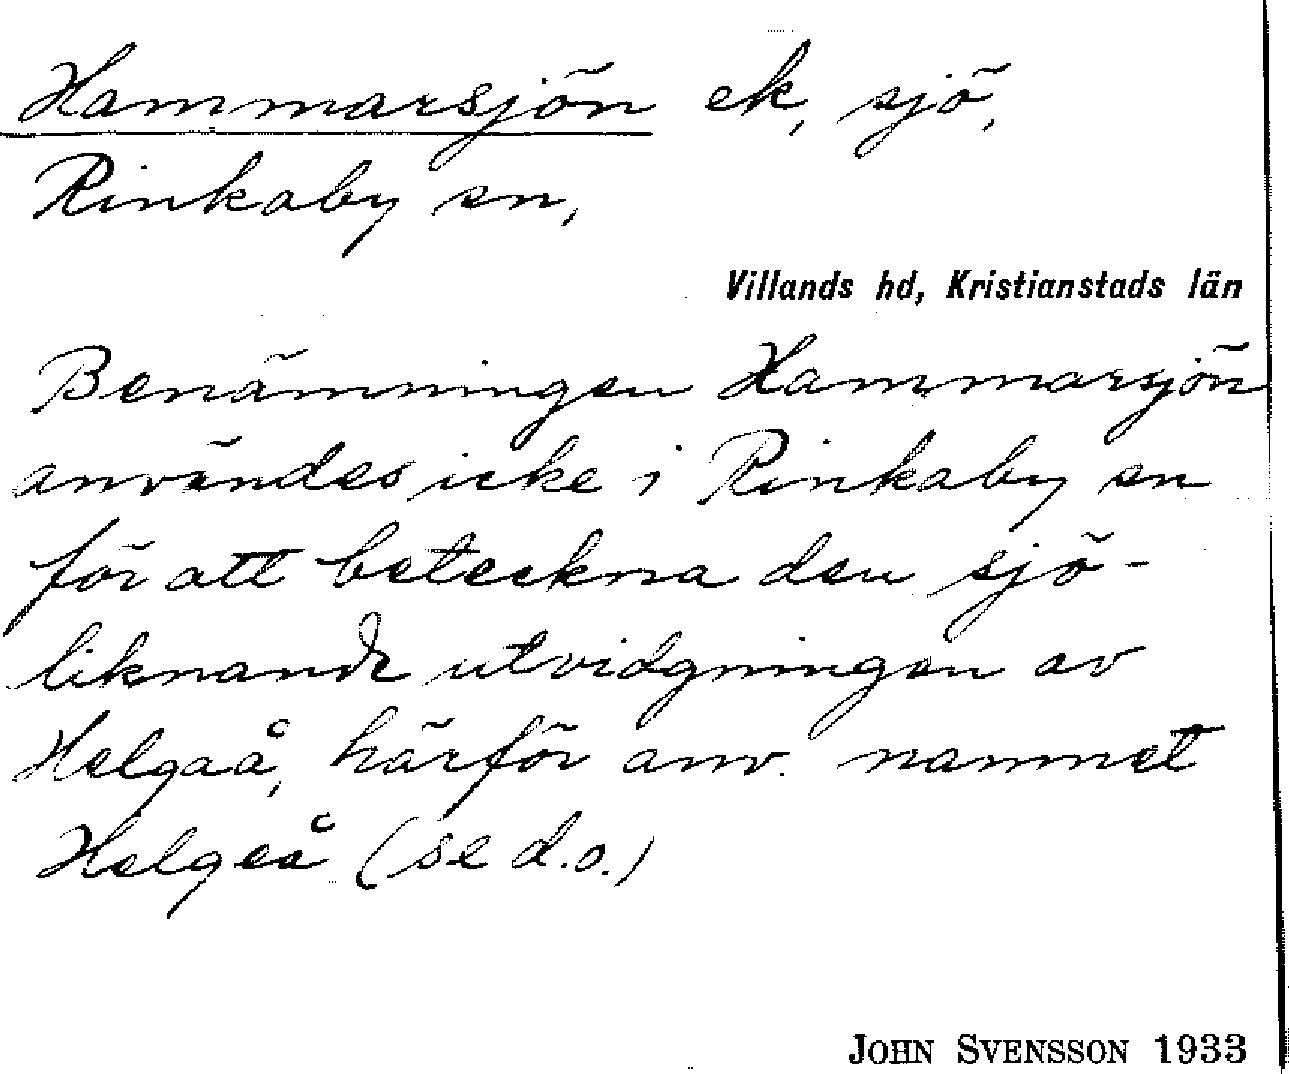 Hammarsjön ek, sjö,
Rinkaby sn,
Villands hd, Kristianstads län
Benämningen Hammarsjön
användes icke i Rinkaby sn
för att beteckna den sjö-
liknande utvidgningen av
Helgaå, härför anv. namnet
Helgeå (se d.o.)
JOHN SVENSSON 1933